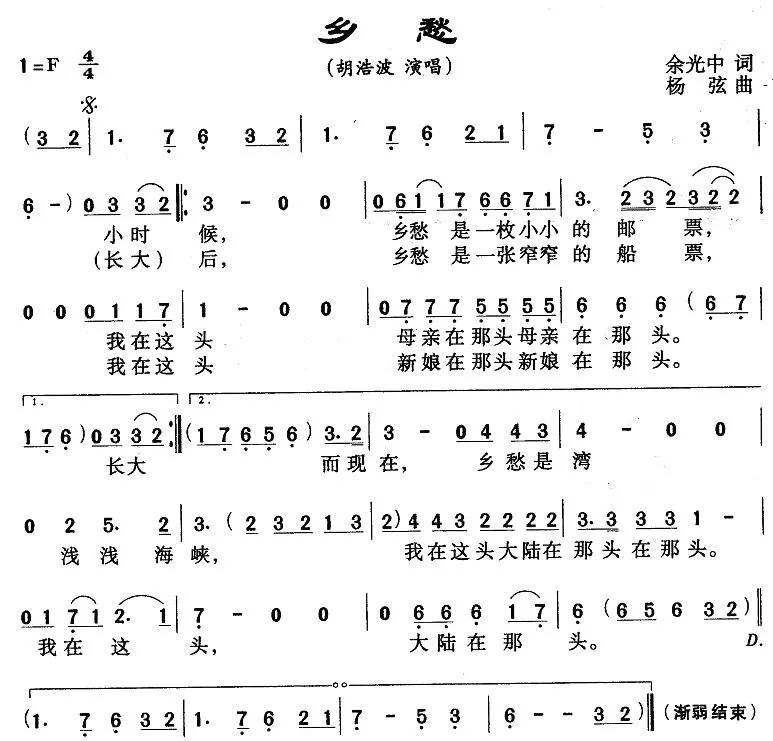 乡愁
(胡浩波 演唱)
1=F 4/4
余光中 词
杨 弦 曲
(3 2 | 1. 7 6 3 2 | 1. 7 6 2 1 | 7 - 5 3 |
6 -) 0 3 3 2 |: 3 - 0 0 | 0 6 1 1 7 6 6 7 1 | 3. 2 3 2 3 2 2 |
小时 候, 乡愁 是一枚小小 的 邮 票,
(长大) 后, 乡愁 是一张窄窄 的 船 票,
0 0 0 1 1 7 | 1 - 0 0 | 0 7 7 7 5 5 5 5 | 6 6 6 (6 7 |
我在这 头 母亲在那头母亲 在 那 头。
我在这 头 新娘在那头新娘 在 那 头。
1. 2.
1 7 6) 0 3 3 2 :| (1 7 6 5 6) 3. 2 | 3 - 0 4 4 3 | 4 - 0 0 |
长大 而现 在, 乡愁是 湾
0 2 5. 2 | 3. (2 3 2 1 3 | 2) 4 4 3 2 2 2 2 | 3. 3 3 3 1 - |
浅 浅 海 峡, 我在这头大陆在 那头在那头。
0 1 7 1 2. 1 | 7 - 0 0 | 0 6 6 6 1 7 | 6 (6 5 6 3 2) ‖
我在 这 头, 大陆在 那 头。 D.
(1. 7 6 3 2 | 1. 7 6 2 1 | 7 - 5 3 | 6 - - 3 2) ‖ (渐弱结束)